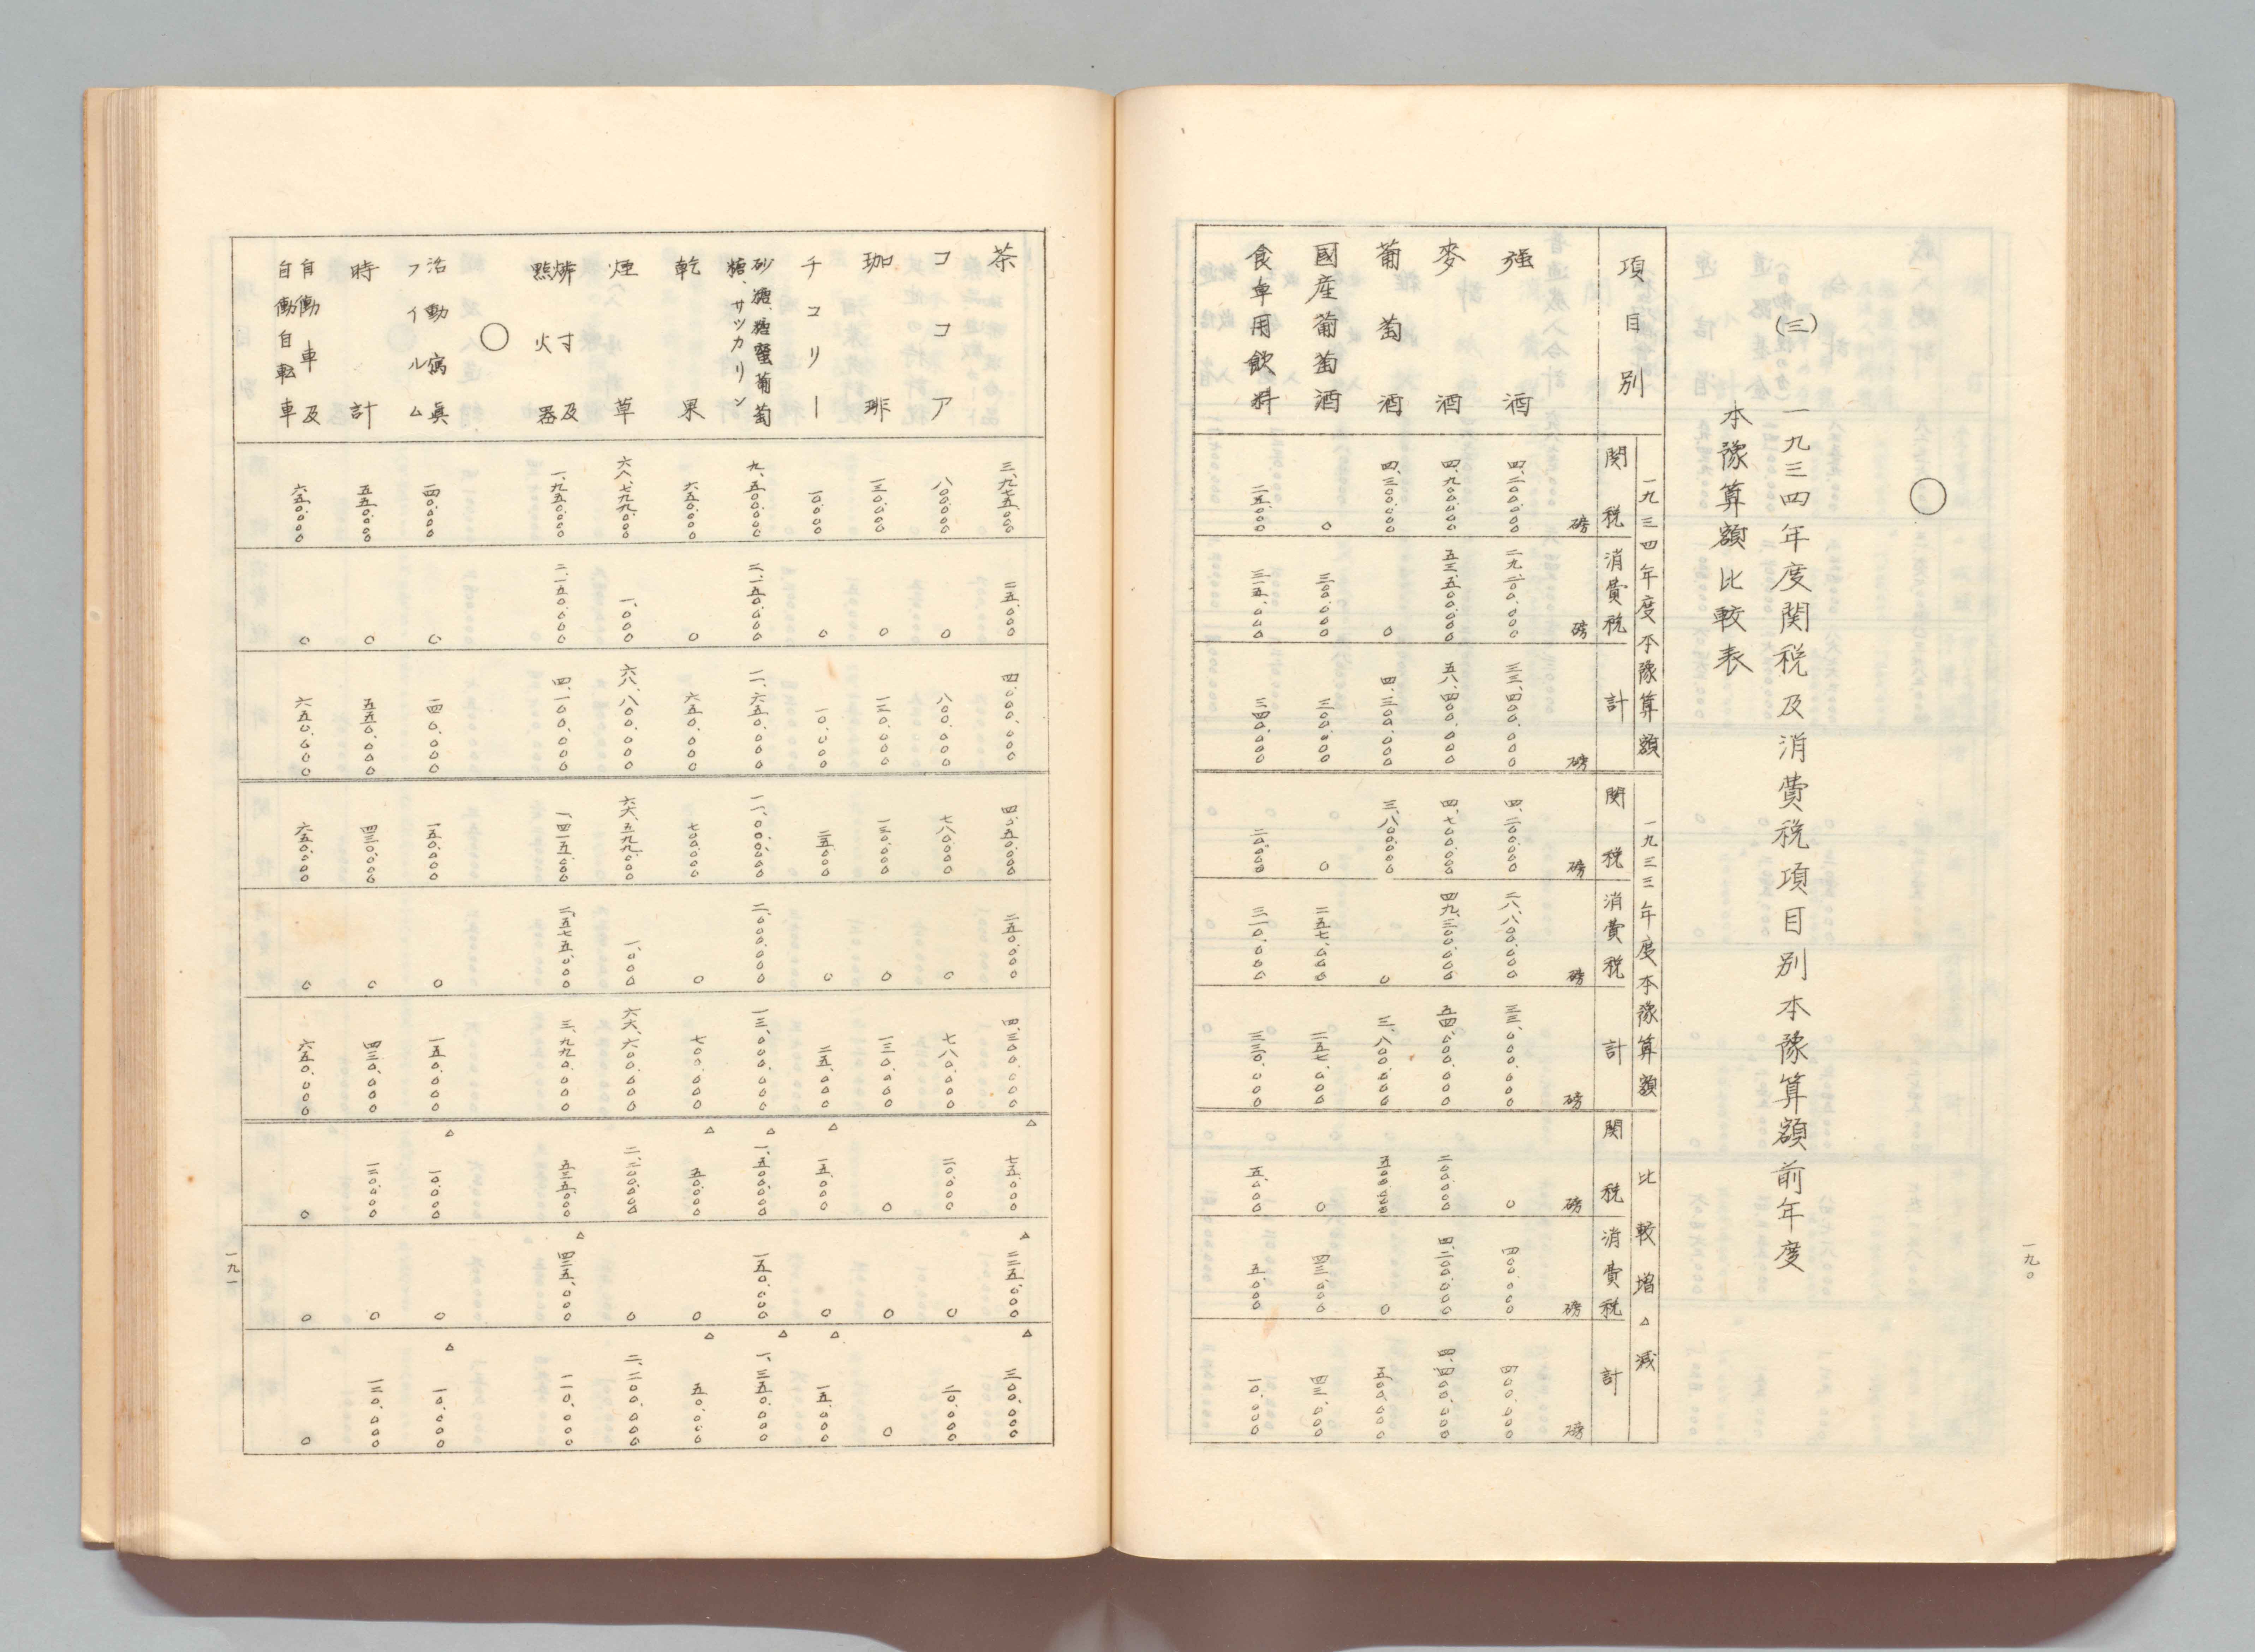 一九〇
○
(三)
一九三四年度関税及消費税項目別本豫算額前年度
本豫算額比較表
一九三四年度本豫算額 一九三三年度本豫算額 比較増△減
項目別 関税 消費税 計 関税 消費税 計 関税 消費税 計
磅 磅 磅 磅 磅 磅 磅 磅 磅
強酒 四、二〇〇、〇〇〇 二九、二〇〇、〇〇〇 三三、四〇〇、〇〇〇 四、二〇〇、〇〇〇 二八、八〇〇、〇〇〇 三三、〇〇〇、〇〇〇 〇 四〇〇、〇〇〇 四〇〇、〇〇〇
麥酒 四、九〇〇、〇〇〇 五三、五〇〇、〇〇〇 五八、四〇〇、〇〇〇 四、七〇〇、〇〇〇 四九、三〇〇、〇〇〇 五四、〇〇〇、〇〇〇 二〇〇、〇〇〇 四、二〇〇、〇〇〇 四、四〇〇、〇〇〇
葡萄酒 四、三〇〇、〇〇〇 〇 四、三〇〇、〇〇〇 三、八〇〇、〇〇〇 〇 三、八〇〇、〇〇〇 五〇〇、〇〇〇 〇 五〇〇、〇〇〇
國産葡萄酒 〇 三〇〇、〇〇〇 三〇〇、〇〇〇 〇 二五七、〇〇〇 二五七、〇〇〇 〇 四三、〇〇〇 四三、〇〇〇
食卓用飲料 二五、〇〇〇 三一五、〇〇〇 三四〇、〇〇〇 二〇、〇〇〇 三一〇、〇〇〇 三三〇、〇〇〇 五、〇〇〇 五、〇〇〇 一〇、〇〇〇
茶 三、九七五、〇〇〇 二五、〇〇〇 四、〇〇〇、〇〇〇 四、〇五〇、〇〇〇 二五〇、〇〇〇 四、三〇〇、〇〇〇 △七五、〇〇〇 △二二五、〇〇〇 △三〇〇、〇〇〇
ココア 八〇〇、〇〇〇 〇 八〇〇、〇〇〇 七八〇、〇〇〇 〇 七八〇、〇〇〇 二〇、〇〇〇 〇 二〇、〇〇〇
珈琲 一三〇、〇〇〇 〇 一三〇、〇〇〇 一三〇、〇〇〇 〇 一三〇、〇〇〇 〇 〇 〇
チコリー 一〇、〇〇〇 〇 一〇、〇〇〇 二五、〇〇〇 〇 二五、〇〇〇 △一五、〇〇〇 〇 △一五、〇〇〇
砂糖、糖蜜葡萄
糖、サツカリン 九、五〇〇、〇〇〇 二、一五〇、〇〇〇 一一、六五〇、〇〇〇 一一、〇〇〇、〇〇〇 二、〇〇〇、〇〇〇 一三、〇〇〇、〇〇〇 △一、五〇〇、〇〇〇 一五〇、〇〇〇 △一、三五〇、〇〇〇
乾果 六五〇、〇〇〇 〇 六五〇、〇〇〇 七〇〇、〇〇〇 〇 七〇〇、〇〇〇 △五〇、〇〇〇 〇 △五〇、〇〇〇
煙草 六八、七九九、〇〇〇 一、〇〇〇 六八、八〇〇、〇〇〇 六六、五九九、〇〇〇 一、〇〇〇 六六、六〇〇、〇〇〇 二、二〇〇、〇〇〇 〇 二、二〇〇、〇〇〇
燐寸及
點火器 一、九五〇、〇〇〇 二、一五〇、〇〇〇 四、一〇〇、〇〇〇 一、四一五、〇〇〇 二、五七五、〇〇〇 三、九九〇、〇〇〇 五三五、〇〇〇 △四二五、〇〇〇 一一〇、〇〇〇
○
活動寫眞
フイルム 一四〇、〇〇〇 〇 一四〇、〇〇〇 一五〇、〇〇〇 〇 一五〇、〇〇〇 △一〇、〇〇〇 〇 △一〇、〇〇〇
時計 五五〇、〇〇〇 〇 五五〇、〇〇〇 四三〇、〇〇〇 〇 四三〇、〇〇〇 一二〇、〇〇〇 〇 一二〇、〇〇〇
自働車及
自働自転車 六五〇、〇〇〇 〇 六五〇、〇〇〇 六五〇、〇〇〇 〇 六五〇、〇〇〇 〇 〇 〇
一九一